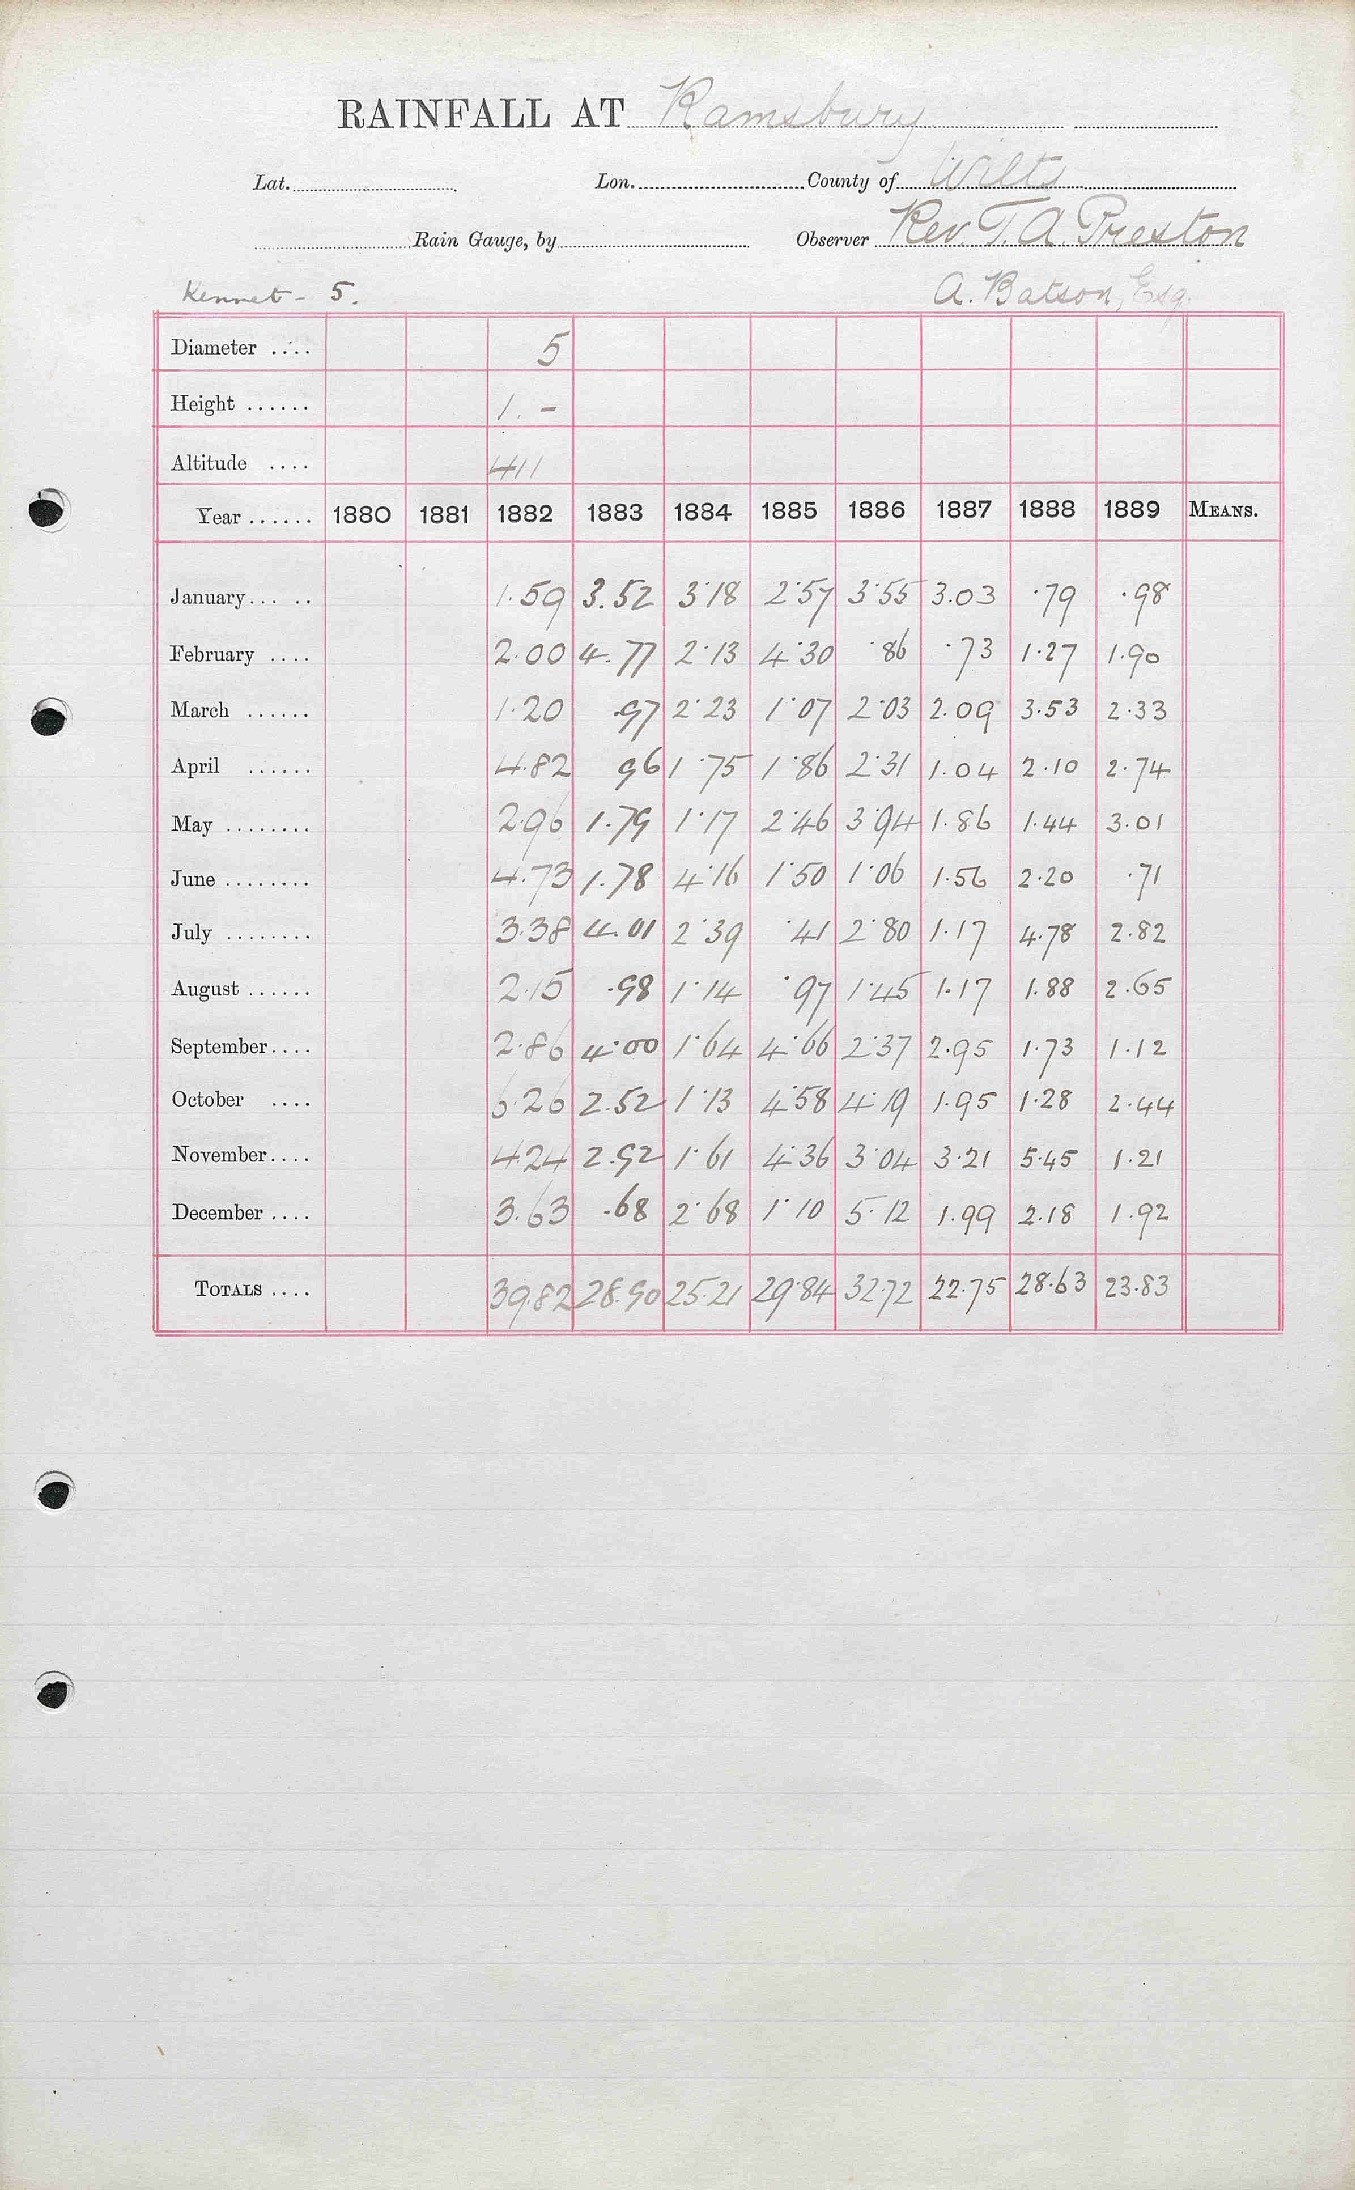 RAINFALL AT Ramsbury
Lat. Lon. County of Wilts
Rain Gauge, by Observer Rev. T. A. Preston
Kennet - 5. A. Batson, Esq.
Diameter .... 5
Height ...... 1. -
Altitude .... 411
Year ...... 1880 1881 1882 1883 1884 1885 1886 1887 1888 1889 MEANS.
January... .. 1.59 3.52 3.18 2.57 3.55 3.03 .79 .98
February .... 2.00 4.77 2.13 4.30 .86 .73 1.27 1.90
March ...... 1.20 .97 2.23 1.07 2.03 2.09 3.53 2.33
April ...... 4.82 96 1.75 1.86 2.31 1.04 2.10 2.74
May ........ 2.96 1.79 1.17 2.46 3.94 1.86 1.44 3.01
June ........ 4.73 1.78 4.16 1.50 1.06 1.56 2.20 .71
July ........ 3.38 4.01 2.39 .41 2.80 1.17 4.78 2.82
August ...... 2.15 .98 1.14 .97 1.45 1.17 1.88 2.65
September.... 2.86 4.00 1.64 4.66 2.37 2.95 1.73 1.12
October .... 6.26 2.52 1.13 4.58 4.19 1.95 1.28 2.44
November.... 4.24 2.92 1.61 4.36 3.04 3.21 5.45 1.21
December .... 3.63 .68 2.68 1.10 5.12 1.99 2.18 1.92
TOTALS .... 39.82 28.90 25.21 29.84 32.72 22.75 28.63 23.83